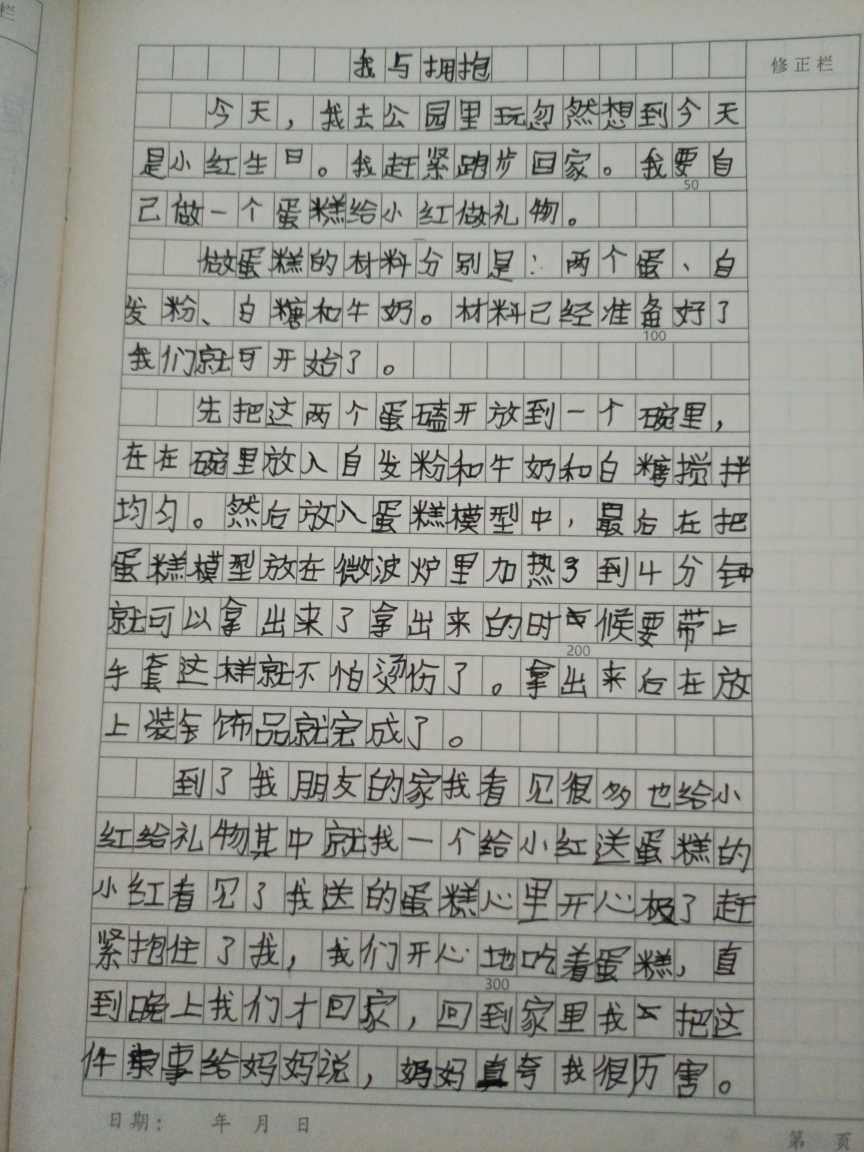 栏
我与拥抱
修正栏
今天，我去公园里玩忽然想到今天
是小红生日。我赶紧跑步回家。我要自
50
己做一个蛋糕给小红做礼物。
做蛋糕的材料分别是：两个蛋、自
发粉、白糖和牛奶。材料已经准备好了
100
我们就可开始了。
先把这两个蛋磕开放到一个碗里，
在在碗里放入自发粉和牛奶和白糖搅拌
均匀。然后放入蛋糕模型中，最后在把
蛋糕模型放在微波炉里加热3到4分钟
就可以拿出来了拿出来的时候要带上
200
手套这样就不怕烫伤了。拿出来后在放
上装饰品就完成了。
到了我朋友的家我看见很多也给小
红给礼物其中就我一个给小红送蛋糕的
小红看见了我送的蛋糕心里开心极了赶
紧抱住了我，我们开心地吃着蛋糕，直
300
到晚上我们才回家，回到家里我把这
件事给妈妈说，妈妈真夸我很厉害。
日期： 年 月 日
第 页